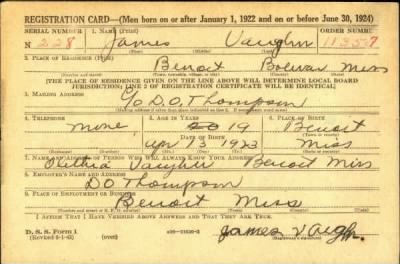 REGISTRATION CARD—(Men born on or after January 1, 1922 and on or before June 30, 1924)
SERIAL NUMBER 1. NAME (Print) ORDER NUMBER
N 228 James Vaughn 11357
(First) (Middle) (Last)
2. PLACE OF RESIDENCE (Print)
Benoit Bolivar Miss
(Number and street) (Town, township, village, or city) (County) (State)
[THE PLACE OF RESIDENCE GIVEN ON THE LINE ABOVE WILL DETERMINE LOCAL BOARD
JURISDICTION; LINE 2 OF REGISTRATION CERTIFICATE WILL BE IDENTICAL]
3. MAILING ADDRESS
C/o D.O. Thompson
4. TELEPHONE 5. AGE IN YEARS 6. PLACE OF BIRTH
none 20 19 Benoit
DATE OF BIRTH
Apr 13 1923 Miss
7. NAME AND ADDRESS OF PERSON WHO WILL ALWAYS KNOW YOUR ADDRESS
Vaughn Benoit Miss
8. EMPLOYER'S NAME AND ADDRESS
D O Thompson
9. PLACE OF EMPLOYMENT OR BUSINESS
Benoit Miss
(Number and street or R. F. D. number) (Town) (County) (State)
I AFFIRM THAT I HAVE VERIFIED ABOVE ANSWERS AND THAT THEY ARE TRUE.
D. S. S. Form 1
(Revised 6-1-42) (over) James Vaughn
(Registrant's signature)